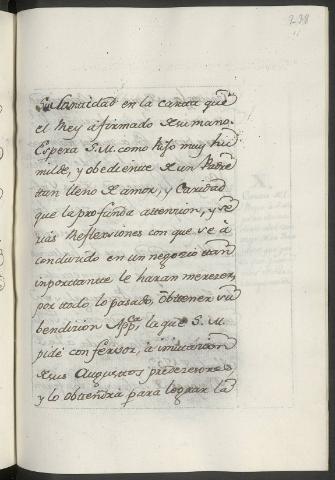 238
Su Santidad en la carta que
el Rey à firmado de su mano.
Espera S. M. como hijo muy hu
milde, y obediente de un Padre
tan lleno de amor, y Caridad
que la profunda attencion, y se
rias Reflexiones con que se à
conducido en un negocio tan
inportante le haràn merecer,
por todo lo pasado, obtener su
bendicion App.ca, la que S. M.
pide con fervor, à imitacion
de sus Augustos predecesores,
y lo obtendrà para lograr la